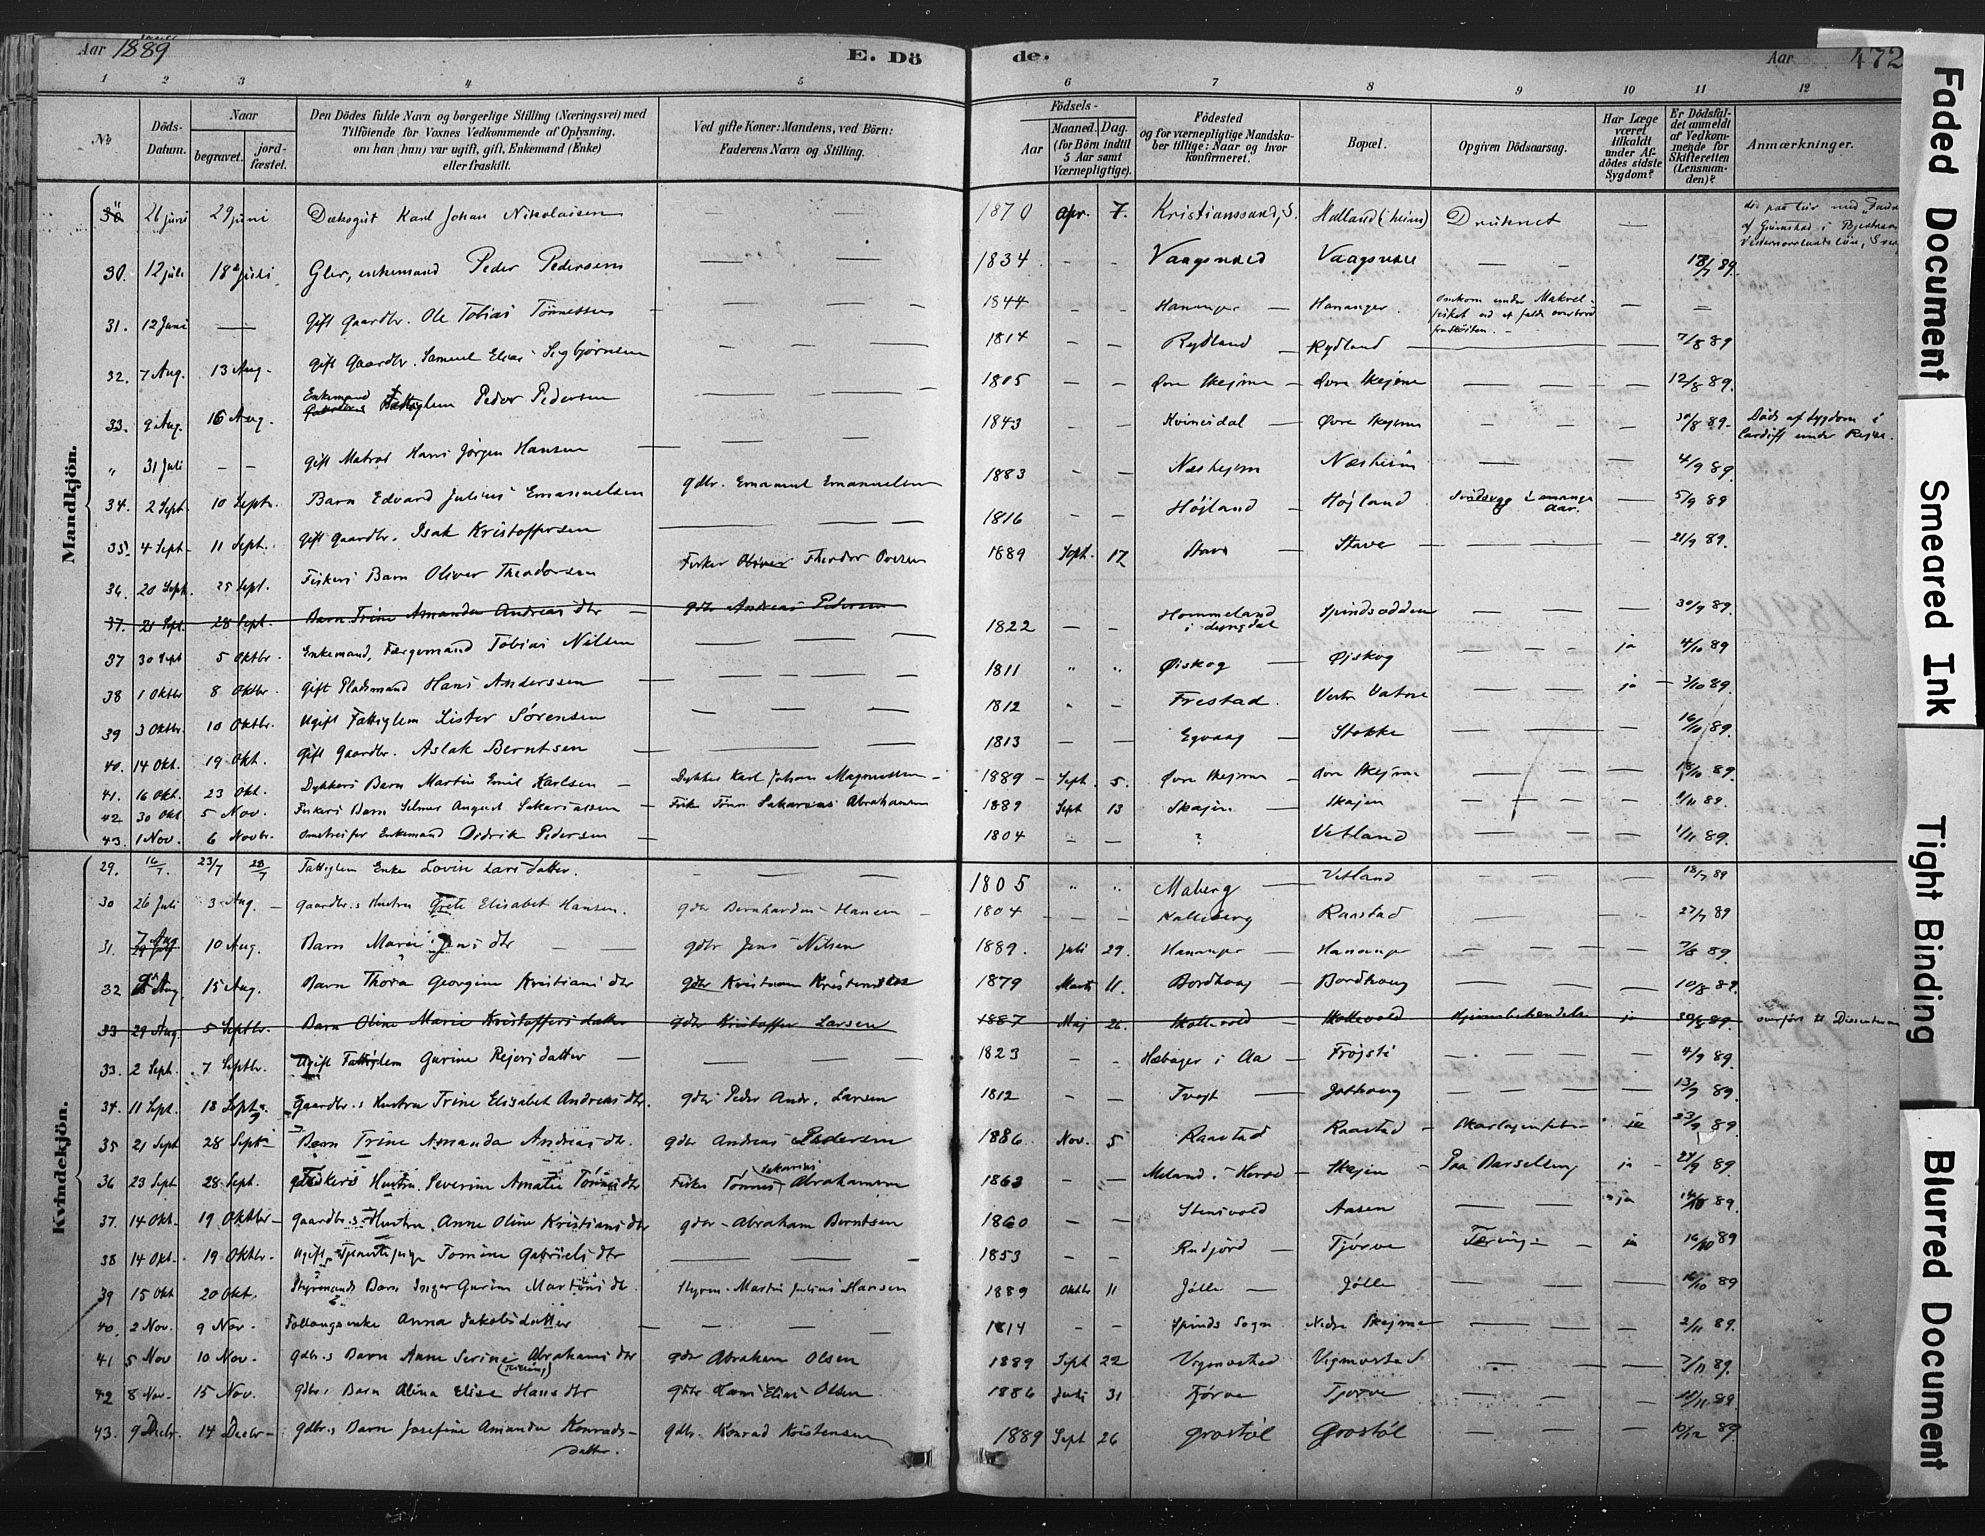 Aar 1889
E. Dö de.
Aar 472
1 2 3 4 5 6 7 8 9 10 11 12
No.
Döds-Datum.
Naar
begravet.
jord-fæstet.
Den Dödes fulde Navn og borgerlige Stilling (Næringsvei) med
Tilföiende for Voxnes Vedkommende af Oplysning,
om han (hun) var ugift, gift, Enkemand (Enke)
eller fraskilt.
Ved gifte Koner: Mandens, ved Börn:
Faderens Navn og Stilling.
Födsels-
Aar
Maaned. Dag.
(for Börn indtil
5 Aar samt
Værnepligtige).
Födested
og for værnepligtige Mandska-
ber tillige: Naar og hvor
konfirmeret.
Bopæl.
Opgiven Dödsaarsag.
Har Læge
været
tilkaldt
under Af-
dödes sidste
Sygdom?
Er Dödsfal-
det anmeldt
af Vedkom-
mende for
Skifteretten
(Lensman-
den)?
Anmærkninger.
Mandkjön.
26 juni 29 juni Dæksgut Karl Johan Nikolaisen — — 1870 Apr. 7. Kristianssand, S. Druknet —
30. 12 juli 18 juli Peder Pedersen — — 1834 - - Vaagsvold Vaagsvold — — 89.
31. 12 Juni — Gift Gaardbr. Ole Tobias Tönnessen — — 1844 - - Hananger — Hananger. Omkom under Makrel-
fisket ved at falde overbord
32. 7 Aug. 13 Aug. Gift Gaardbr. Samuel Elias Sigbjörnsen — — 1814 - - Rydland — Rydland — 7/8 89
33. 9 Aug. 16 Aug. Enkemand Fattiglem Peder Pedersen — — 1805 — — Övre Skejme — Övre Skejme — — 12/8 89.
" 31 Juli — — Gift Matros Hans Jörgen Hansen — — 1843 — — Kvinesdal — Övre Skejme — — 30/8 89. Döds af Sygdom i
Cardiff under Rejse.
34. 2 Sept. 10 Septr. Barn Edvard Julius Emanuelsen gdbr. Emanuel Emanuelsen 1883 - - Næsheim Næsheim — — 4/9 89.
35. 4 Sept. 11 Sept. Gift Gaardbr. Isak Kristoffersen — — 1816 - - Höjland — Höjland Sindssyg i mange
Aar. — 5/9 89
36. 20 Sept. 25 Sept. Fiskers Barn Oliver Theodorsen Fisker Oliver Theodor 1889 Sept. 17 Stave — Stave — 21/9 89.
37. 21 Sept. 28 Sept. Barn Trine Amanda Andreas dtr — gdbr Andreas Pedersen
37 30 Sept 5 Oktbr. Enkemand, Færgemand Tobias Nilsen — — 1822 — — Hommeland
i Lyngdal Spindsodden — — 30/9 89.
38 1 Oktbr 8 Oktbr. Gift Pladsmand Hans Anderssen — — 1811 " " Öiskog — Öjskog — — ja 4/10 89.
39 3 Oktbr. 10 Oktbr. Ugift Fattiglem Lister Sörensen — — 1812 - - Frestad. Vestre Vatne — — ja 3/10 89.
40. 14 Okt. 19 Okt. Gift Gaardbr. Aslak Berntsen — — 1813 — — Egvaag — Stokke — — 16/10 89.
41. 16 Okt. 23 Okt. Dykkers Barn Martin Emil Karlsen — Dykker Karl Johan Magnussen — 1889 — Sept. 5. Övre Skejme — Övre Skejme — — 18/10 89.
42 30 Okt. 5 Nov. Fiskers Barn Selmer August Sakariassen — Fisker Tönnes Sakarias Abrahamsen 1889 Sept 13 Skajen — Skajen — — 89.
43. 1 Nov. 6 Novbr. Enkemand Didrik Pedersen — — 1804 — — ? Vetland — — 1/11 89.
Kvindekjön.
29. 16/7. 23/7 23/7 Fattiglem Enke Lovise Larsdatter. — — 1805 " " Maberg — Vetland 18/7 89
30 26 Juli 3 Aug. — Gaardbr.s Hustru Grete Elisabet Hansen. gdbr Bernhardus Hansen — 1804 — — Kalleberg Raastad — — 27/7 89
31. 7 Aug 10 Aug. Barn Marie Jens dtr — — gdbr Jens Nilsen 1889. Juli 29. Hananger — Hananger — — 7/8 89.
32 Aug. 15 Aug. Barn Thora Georgine Kristians dtr gdbr Kristian Kristensen 1879 Marts 11. Bordhoug — Bordhoug — — 10/8 89.
33 29 Aug. 5 Septbr. Barn Oline Marie Kristoffersdatter gdbr Kristoffer Larsen 1887 Maj 26. Skollevold — Skollevold Hjernebetændelse ja 30/8 89. overfört til
33. 2 Sept. 7 Septbr. Ugift Fattiglem Gurine Rejersdatter — — 1823 - - Hæbager i Aa — — — 4/9 89.
34. 11 Sept. 18 Sept. Gaardbr.s Hustru Trine Elisabet Andreas dtr. gdbr Peder Andr. Larsen 1812 — — — Jothoug — — 13/9 89.
35 21 Sept 28 Sept. Barn Trine Amanda Andreas dtr. gdbr Andreas Pedersen 1886 Nov. 5 Raastad Raastad — Skarlagensfeber — ja 23/9 89
36 23 Sept 28 Sept. Fiskers Hustru Severine Amalie Tönnes dtr Fisker Tönnes Sakarias Abrahamsen 1863 — — Meland i Herad — Skajen — Paa Barselseng ja — 24/9 89
37. 14 Okt. 19 Oktbr — Gaardbr.s Hustru Anne Oline Kristians dtr gdbr — Abraham Berntsen 1860 — — Stensvold Aasen — — ja 14/10 89.
38 14 Okt. 19 Oktbr. Ugift Tjenestepige Tomine Gabriels dtr — — 1853 - - Rudjord — Tjörve Tæring — ja 16/10 89
39 15 Okt 20 Okt. Styrmands Barn Inger Gurine Martinus dtr. Styrm. Martin Julius Hansen 1889 Oktbr 11 Jölle — Jölle — — 16/10 89
40. 2 Nov. 9 Nov. Anna Jakobsdatter — — 1814 - - Spinds Sogn Nedre Skejme — — 2/11 89.
41 5 Nov 10 Nov. gdbr.s Barn Anne Serine Abrahams dtr
(Tvilling) gdbr Abraham Olsen 1889 Sept 22 Vigmostad Vigmostad — — 7/11 89.
42 8 Nov. 15 Nov. gdbr.s Barn Alina Elise Hans dtr gdbr Hans Elias Olsen 1886 Juli 31 Tjörve Tjörve — — 11/11 89
43. 9 Decbr. 14 Decbr — gdbr.s Barn Josefine Amanda Konrads-
datter. gdbr. Konrad Kristensen 1889 Sept 26 Grostöl Grostöl — — 10/12 89
Faded Document
Smeared Ink
Tight Binding
Blurred Document